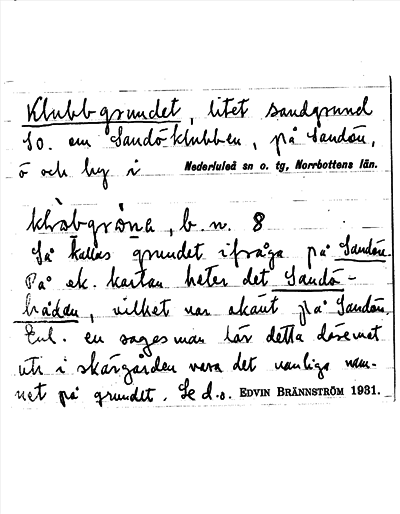 Klubbgrundet, litet sandgrund
SO. om Sandöklubben, på Sandön,
ö och by i Nederluleå sn o. tg, Norrbottens län.
b. n. 8
Så kallas grundet ifråga på Sandön.
På ek. kartan heter det Sandö-
bådan, vilket var okänt på Sandön.
Enl. en sagesman lär detta däremot
ute i skärgården vara det vanliga nam-
net på grundet. Se d.o. EDVIN BRÄNNSTRÖM 1931.